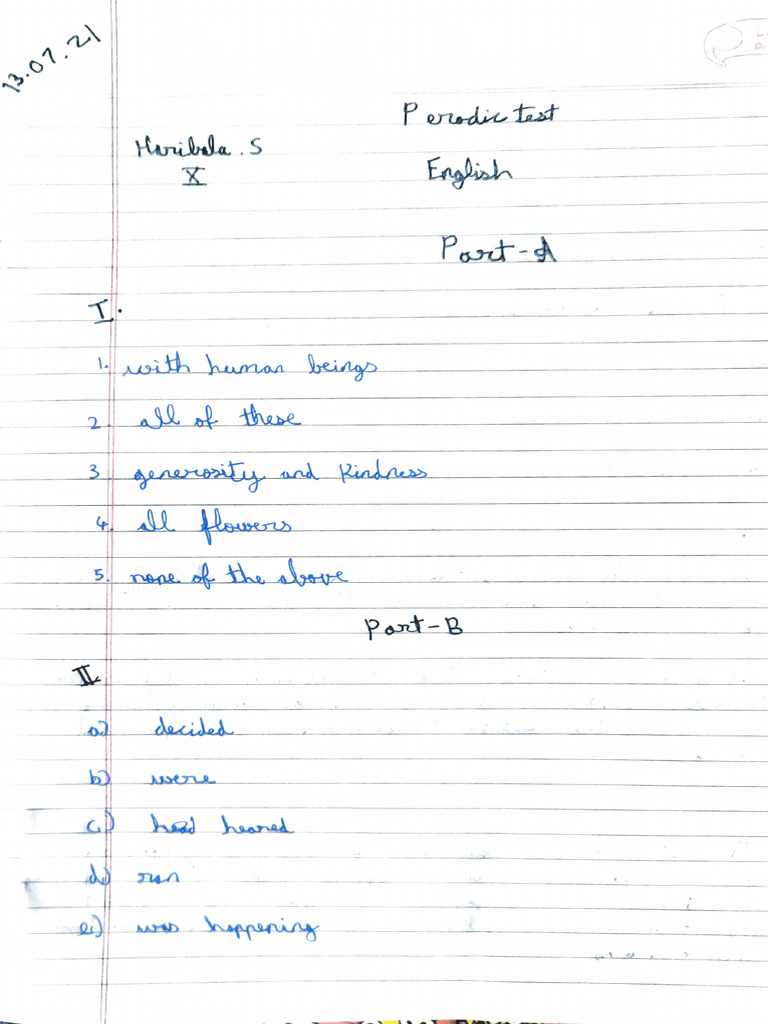 13.07.21
Perodic test
Haribala . S
X
English
Part-A
I.
1. with human beings
2 all of these
3 generosity and kindness
4. all flowers
5. none of the above
Part-B
II
a) decided
b) were
c) had heared
d) run
e) was happening